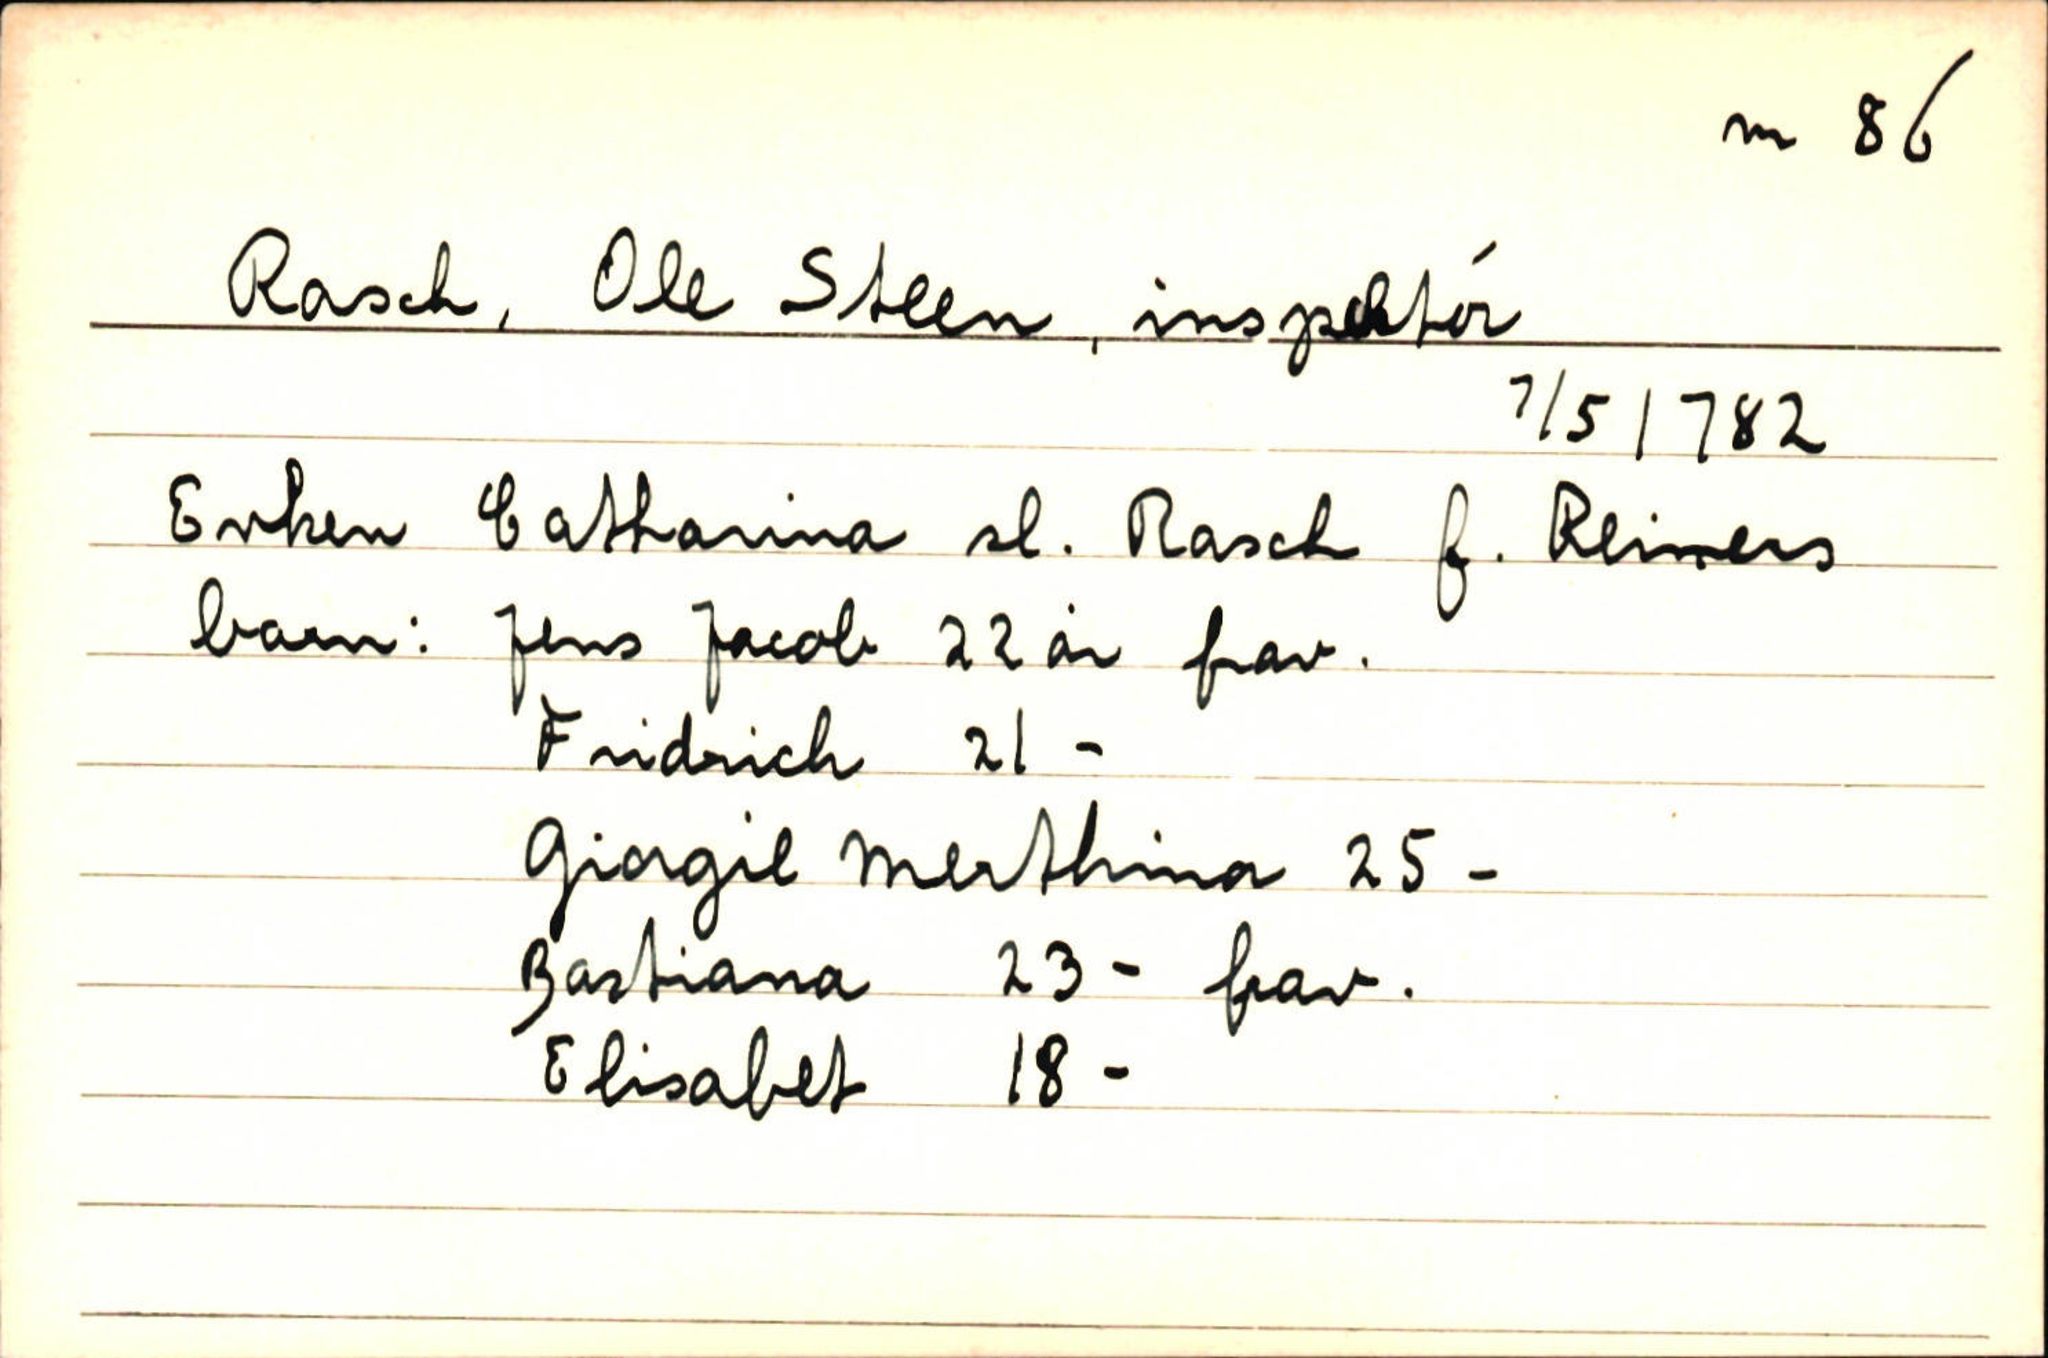 m 86
Rasch, Ole Steen, inspektör
7/5 1782
Enken Catharina sl. Rasch f. Reimers
barn: Jens Jacob 22 år frav.
Fridrich 21 -
Giorgie Merthina 25 -
Bastiana 23 - frav.
Elisabet 18 -